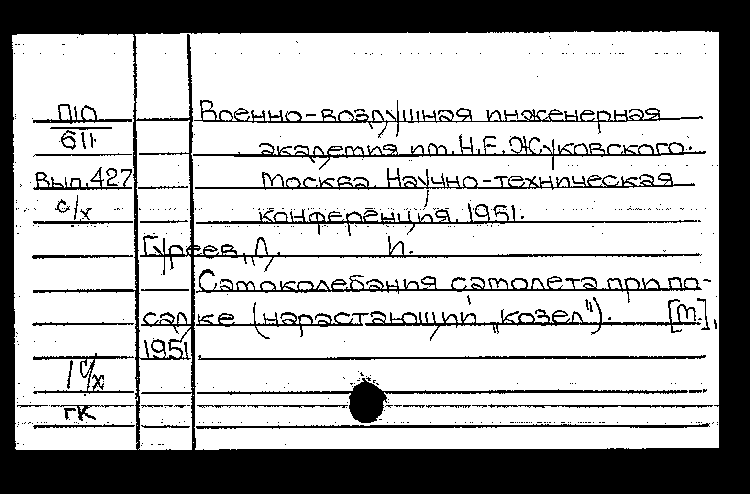 П10 Военно-воздушная инженерная
611 академия им. Н.Е. Жуковского.
Вып. 427 Москва. Научно-техническая
с/х конференция. 1951.
И.
Самоколебания самолета при по-
садке (нарастающий „козел"). [М.],
1951.
1 с/х
ГК